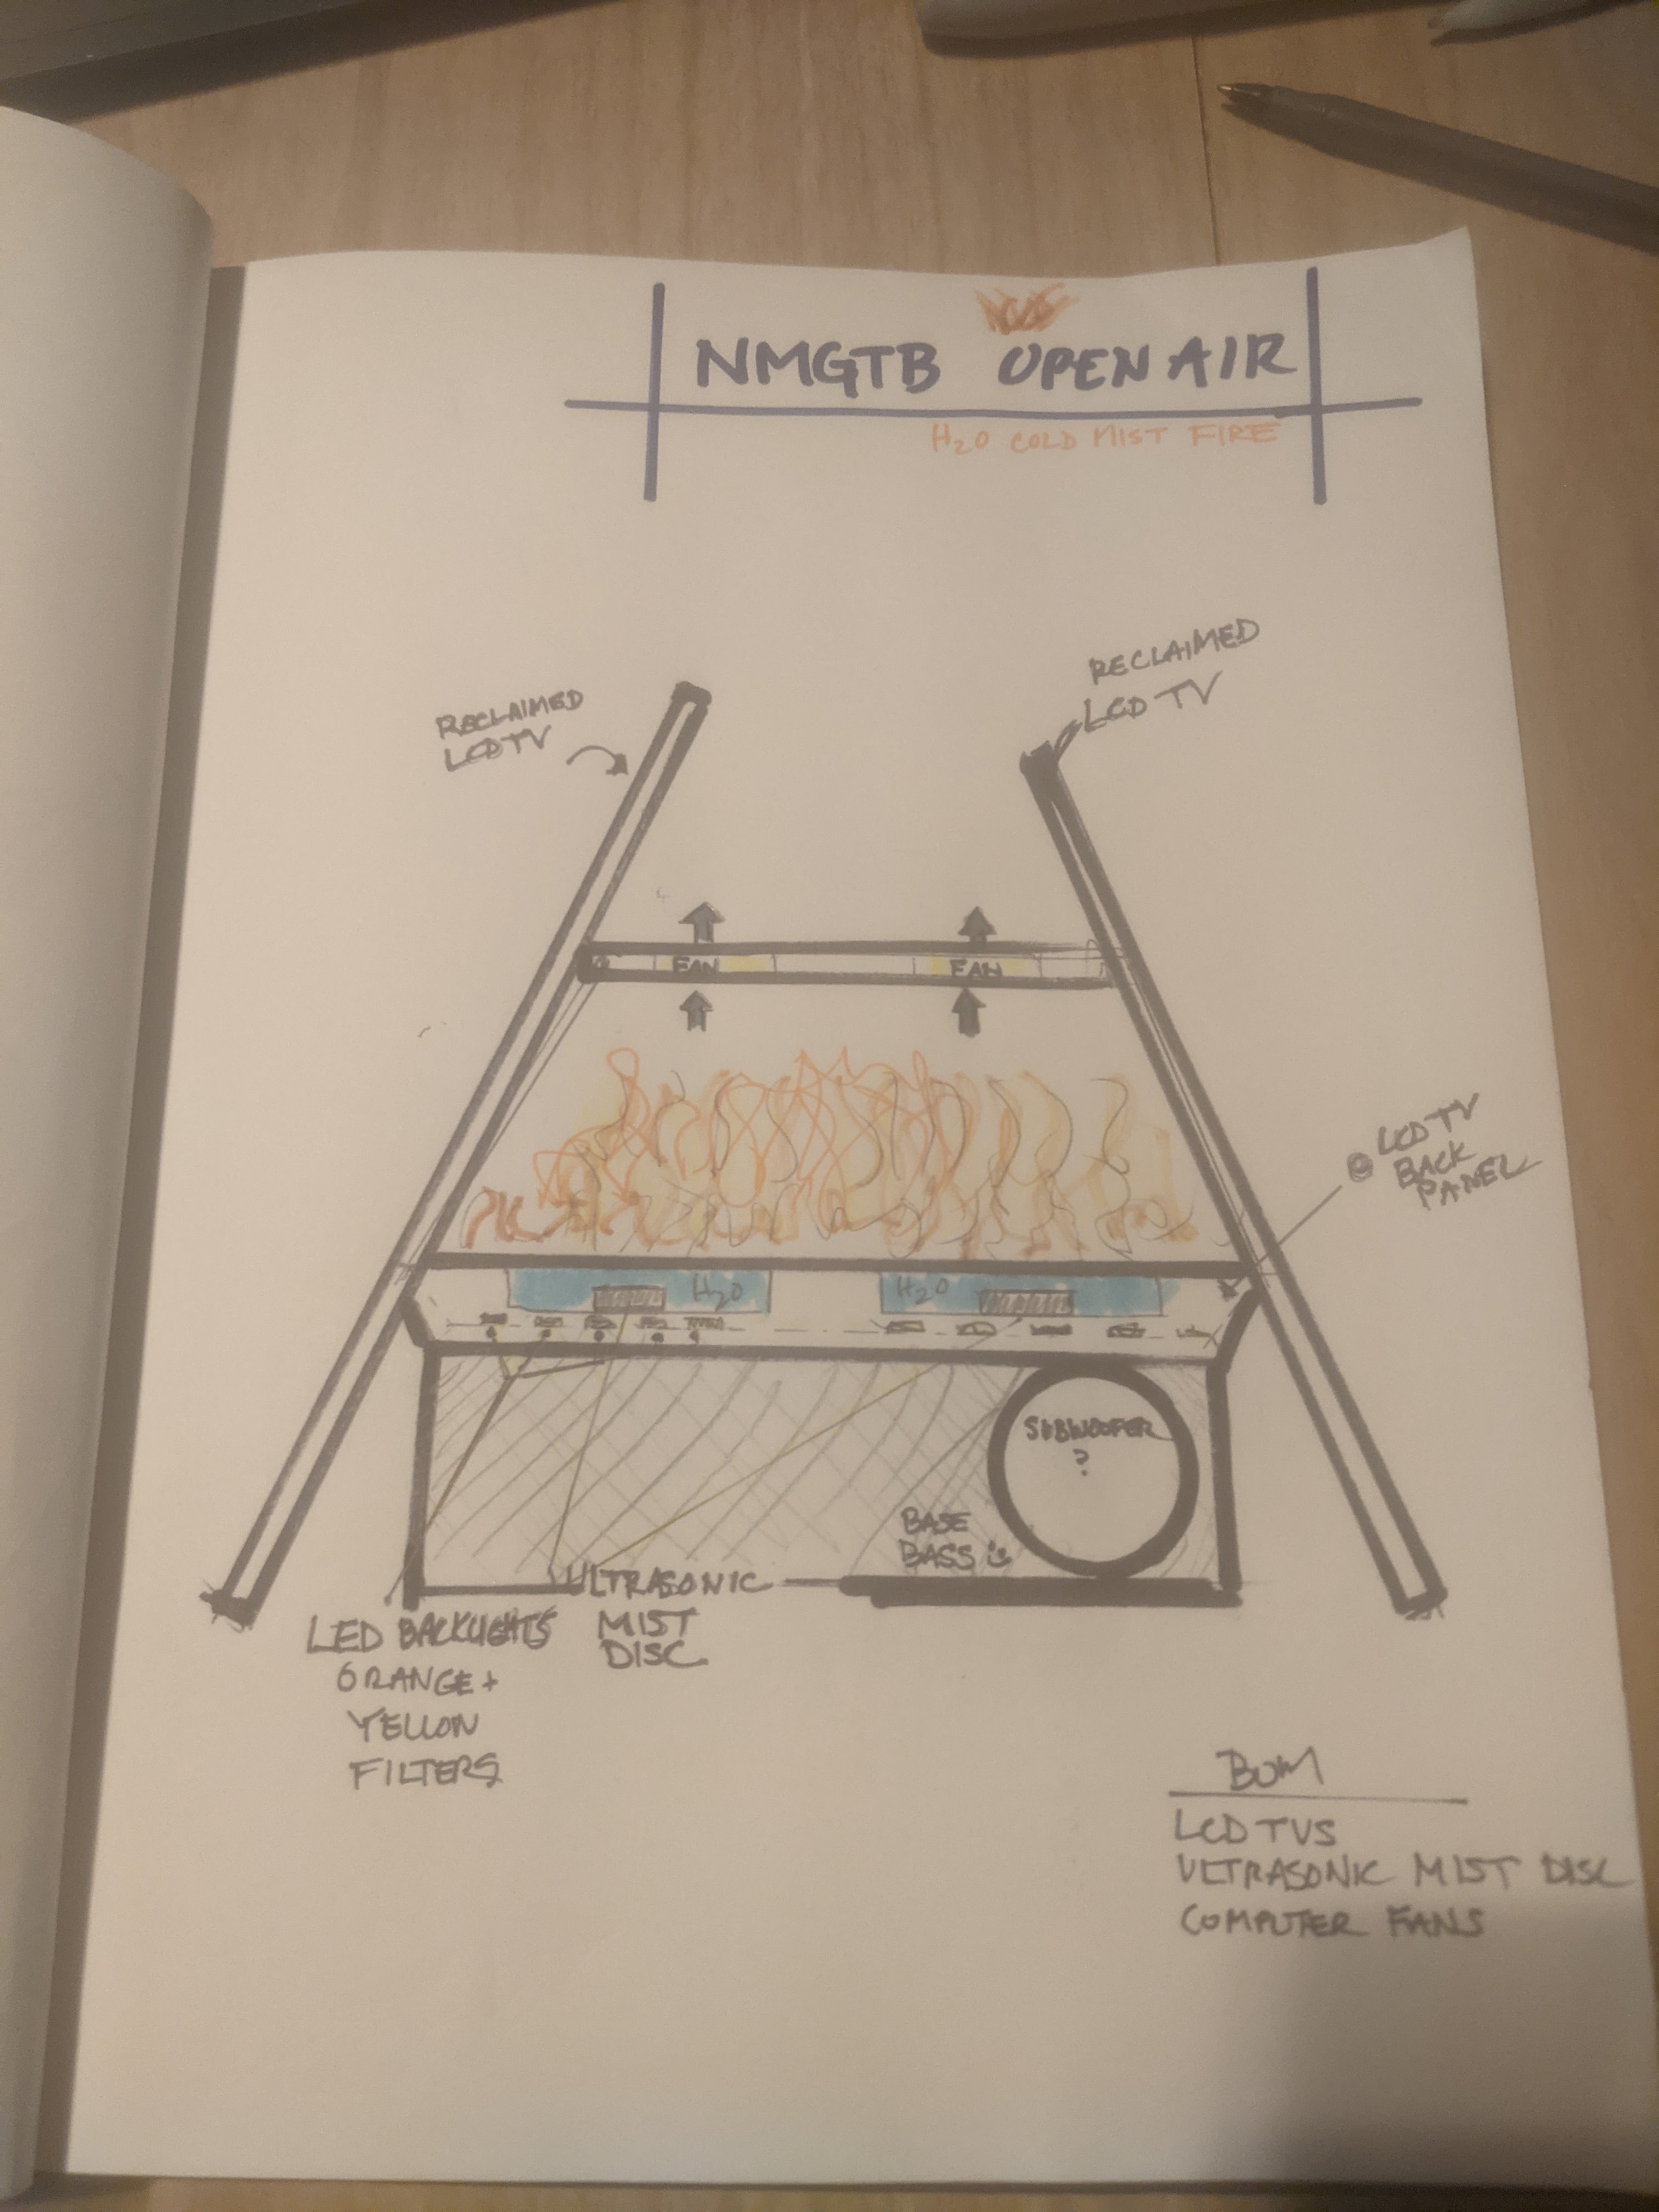 NMGTB OPEN AIR
H2O COLD MIST FIRE
RECLAIMED
LCD TV
RECLAIMED
LCD TV
FAN
FAN
LCD TV
BACK
PANEL
H2O
H2O
SUBWOOFER
?
BASE
BASS
ULTRASONIC
MIST
DISC
LED BACKLIGHTS
ORANGE +
YELLOW
FILTERS
BOM
LCD TVS
ULTRASONIC MIST DISC
COMPUTER FANS